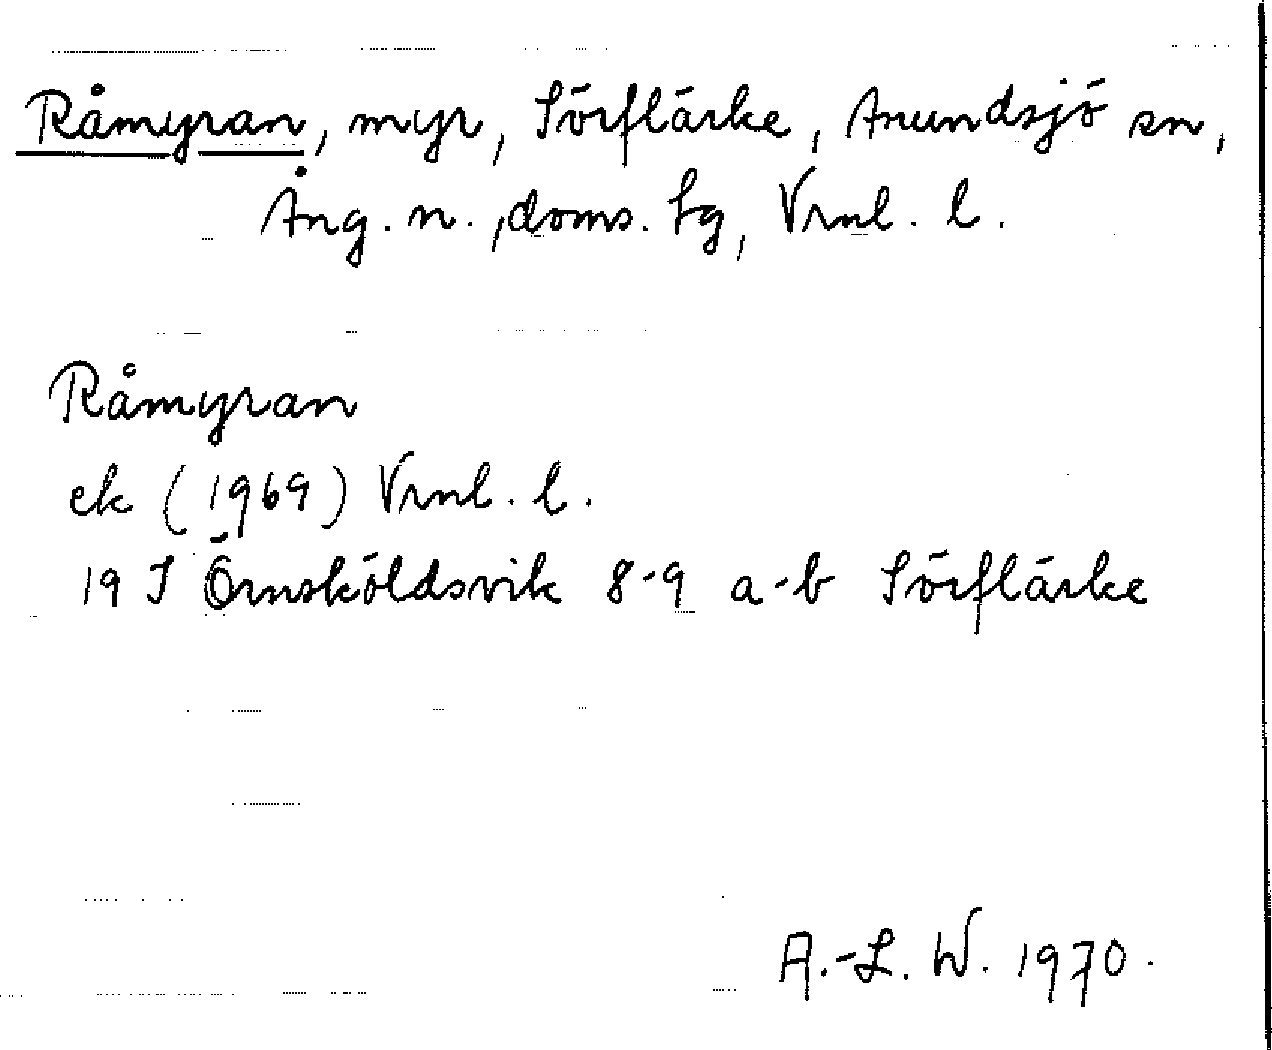 Råmyran, myr, Sörflärke, Anundsjö sn,
Ång. n., doms. tg, Vrnl. l.
Råmyran
ek (1969) Vrnl. l.
19 J Örnsköldsvik 8-9 a-b Sörflärke
A.-L. W. 1970.